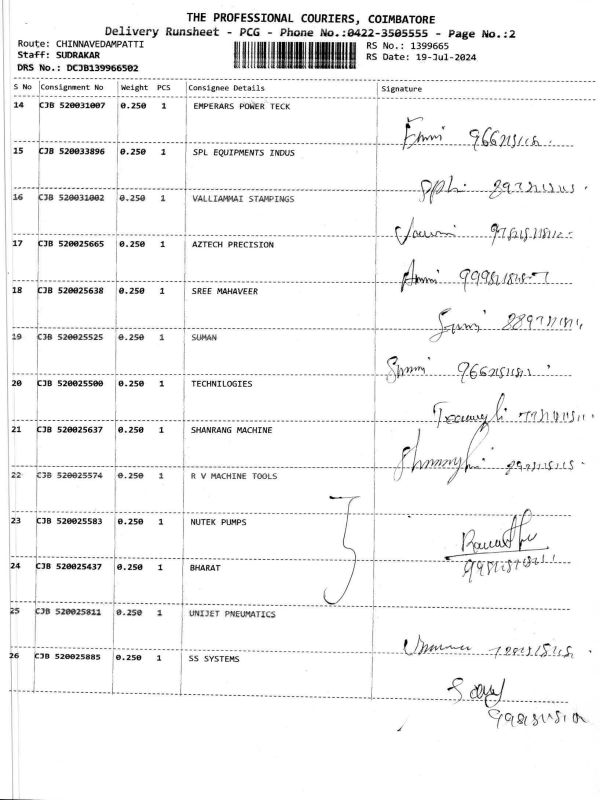 THE PROFESSIONAL COURIERS, COIMBATORE
Delivery Runsheet - PCG - Phone No.:0422-3505555 - Page No.:2
Route: CHINNAVEDAMPATTI RS No.: 1399665
Staff: SUDRAKAR RS Date: 19-Jul-2024
DRS No.: DCJB139966502
S No Consignment No Weight PCS Consignee Details Signature
14 CJB 520031007 0.250 1 EMPERARS POWER TECK
15 CJB 520033896 0.250 1 SPL EQUIPMENTS INDUS
16 CJB 520031002 0.250 1 VALLIAMMAI STAMPINGS
17 CJB 520025665 0.250 1 AZTECH PRECISION
18 CJB 520025638 0.250 1 SREE MAHAVEER
19 CJB 520025525 0.250 1 SUMAN
20 CJB 520025500 0.250 1 TECHNILOGIES
21 CJB 520025637 0.250 1 SHANRANG MACHINE
22 CJB 520025574 0.250 1 R V MACHINE TOOLS
23 CJB 520025583 0.250 1 NUTEK PUMPS
24 CJB 520025437 0.250 1 BHARAT
25 CJB 520025811 0.250 1 UNIJET PNEUMATICS
26 CJB 520025885 0.250 1 SS SYSTEMS